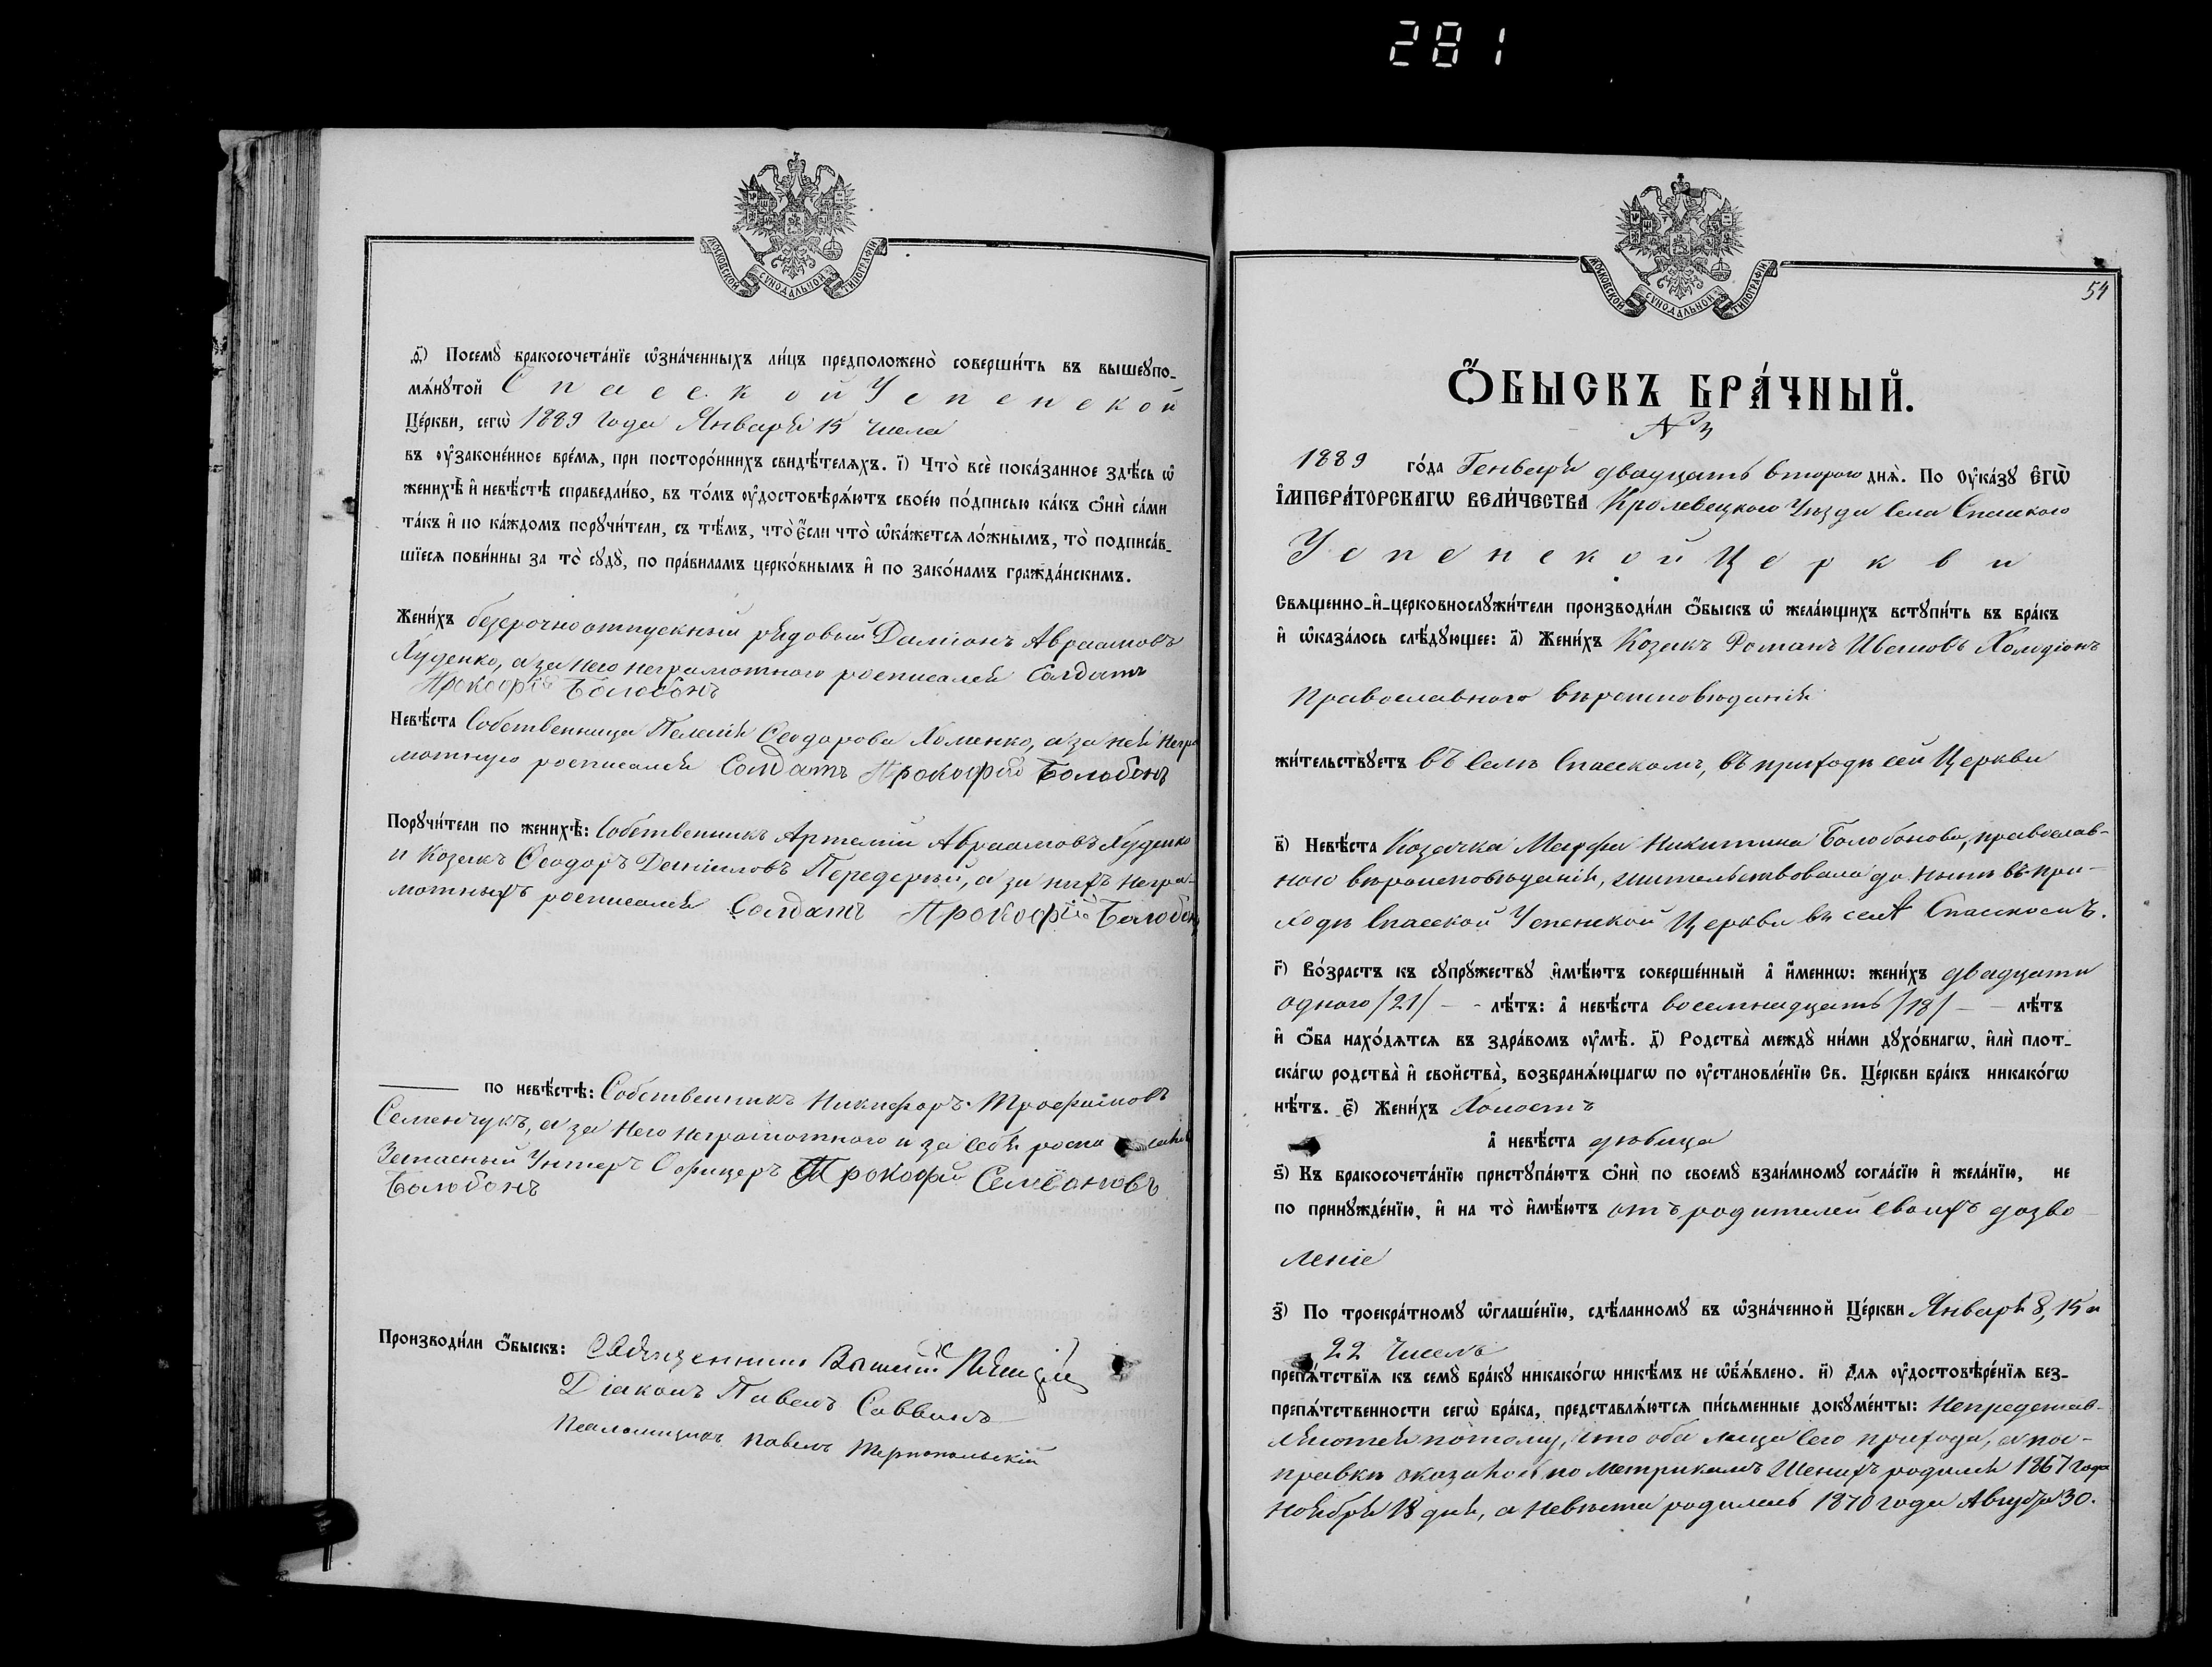 281
МОСКОВСКОЙ СѴНОДАЛЬНОЙ ТИПОГРАФІИ
ѳ҃) Посемꙋ̀ бракосочета́нїе ѡ҆зна́ченныхъ ли́цъ предположено̀ соверши́ть въ вышеꙋпо-
мѧ́нꙋтой Спасской Успенской
Це́ркви, сегѡ̀ 1889 года Января 15 числа
въ ᲂу҆законе́нное вре́мѧ, при посторо́ннихъ свидѣ́телѧхъ. і҃) Что̀ всѐ пока́занное здѣ́сь ѡ҆
женихѣ̀ и҆ невѣ́стѣ справедли́во, въ то́мъ ᲂу҆достовѣрѧ́ютъ свое́ю по́дписью ка́къ ѻ҆нѝ са́ми
та́къ и҆ по ка́ждомъ порꙋчи́тели, съ тѣ́мъ, что̀ є҆́сли что̀ ѡ҆ка́жетсѧ ло́жнымъ, то̀ подписа́в-
шїесѧ пови́нны за то̀ сꙋдꙋ̀, по пра́виламъ церко́внымъ и҆ по зако́намъ гражда́нскимъ.
Жени́хъ безсрочноотпускный рядовый Даміанъ Авраамовъ
Худенко, а за него неграмотного росписался Солдатъ
Прокофій Болобонъ
Невѣ́ста Собственница Пелагія Ѳеодорова Хоменко, а за нея негра
мотную росписался Солдатъ Прокофій Болобонъ
Порꙋчи́тели по женихѣ̀: Собственникъ Артемій Авраамовъ Худенко
и Козакъ Ѳеодоръ Даніиловъ Передерій, а за нихъ негра-
мотныхъ росписался Солдатъ Прокофій Болобонъ
по невѣ́стѣ: Собственникъ Никифоръ Трофимовъ
Семенчукъ, а за него неграмотного и за себя роспи сался
Запасный Унтеръ Офицеръ Прокофій Семіоновъ
Болобонъ
Производи́ли ѻ҆́быскъ: Священникъ
Діаконъ Павелъ Саввинъ
Псаломщикъ Павелъ Тернопольскій
МОСКОВСКОЙ СѴНОДАЛЬНОЙ ТИПОГРАФІИ
54
Ѻ҆́БЫСКЪ БРА́ЧНЫЙ.
№ 3
1889 го́да Генваря двадцать второго днѧ̀. По ᲂу҆ка́зꙋ Є҆ГѠ̀
І҆МПЕРА́ТОРСКАГѠ ВЕЛИ́ЧЕСТВА Кролевецкого Уѣзда Села Спасского
Успенской Церкви
Свѧщенно-и҆-церковнослꙋжи́тели производи́ли ѻ҆́быскъ ѡ҆ жела́ющихъ встꙋпи́ть въ бра́къ
и҆ ѡ҆каза́лось слѣ́дꙋющее: а҃) Жени́хъ Козакъ Романъ Ивановъ Холодіонъ
православного вѣроисповѣданія
жи́тельствꙋетъ въ Селѣ Спасскомъ, въ приходѣ сей Церкви
в҃) Невѣ́ста Козачка Марфа Никитина Болобонова, православ-
ного вѣроисповѣданія, жительствовала до нынѣ въ при-
ходѣ Спасской Успенской Церкви въ селѣ Спасскомъ.
г҃) Во́зрастъ къ сꙋпрꙋ́жествꙋ и҆мѣ́ютъ соверше́нный а҆ и҆́менно: жени́хъ двадцати
одного /21/ - - лѣ́тъ: а҆ невѣ́ста восемнадцать /18/ - - лѣ́тъ
и҆ ѻ҆́ба нахо́дѧтсѧ въ здра́вомъ ᲂу҆мѣ̀. д҃) Родства̀ междꙋ̀ ни́ми дꙋхо́внагѡ, и҆лѝ плот-
ска́гѡ родства̀ и҆ сво́йства̀, возбранѧ́ющагѡ по ᲂу҆становле́нїю Св. Це́ркви бра́къ никако́гѡ
нѣ́тъ. є҃) Жени́хъ Холостъ
а҆ невѣ́ста дѣвица
ѕ҃) Къ бракосочета́нїю пристꙋпа́ютъ ѻ҆нѝ по своемꙋ̀ взаи́мномꙋ согла́сїю и҆ жела́нїю, не
по принꙋжде́нїю, и҆ на то̀ и҆мѣ́ютъ отъ родителей своихъ дозво
леніе
з҃) По троекра́тномꙋ ѡ҆глаше́нїю, сдѣ́ланномꙋ въ ѡ҆зна́ченной Це́ркви Января 8, 15 и
22 числъ
препѧ́тствїѧ къ семꙋ̀ бра́кꙋ никако́гѡ никѣ́мъ не ѡ҆б̾ѧ́влено. и҃) Длѧ ᲂу҆достовѣре́нїѧ без-
препѧ́тственности сегѡ̀ бра́ка, представлѧ́ютсѧ пи́сьменные докꙋме́нты: Непредстав-
ляются потому, что оба лица сего прихода, а по с-
правкѣ оказалось по метрикамъ Женихъ родился 1867 года
Ноября 18 дня, а невѣста родилась 1870 года Августа 30.